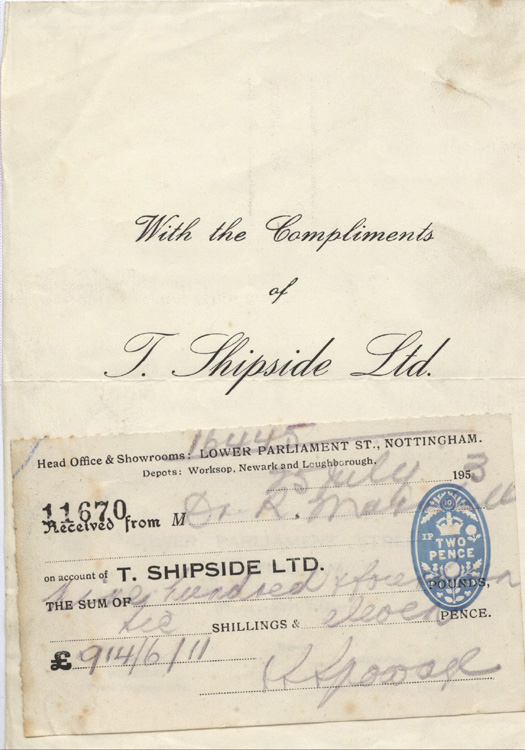 With the Compliments
of
T. Shipside Ltd.
16445
Head Office & Showrooms: LOWER PARLIAMENT ST., NOTTINGHAM.
Depots: Worksop, Newark and Loughborough.
July 1953
11670
Received from M Dr R
on account of T. SHIPSIDE LTD.
hundred & fourteen POUNDS,
THE SUM OF
six SHILLINGS & eleven PENCE.
£ 914/6/11
TWO
PENCE